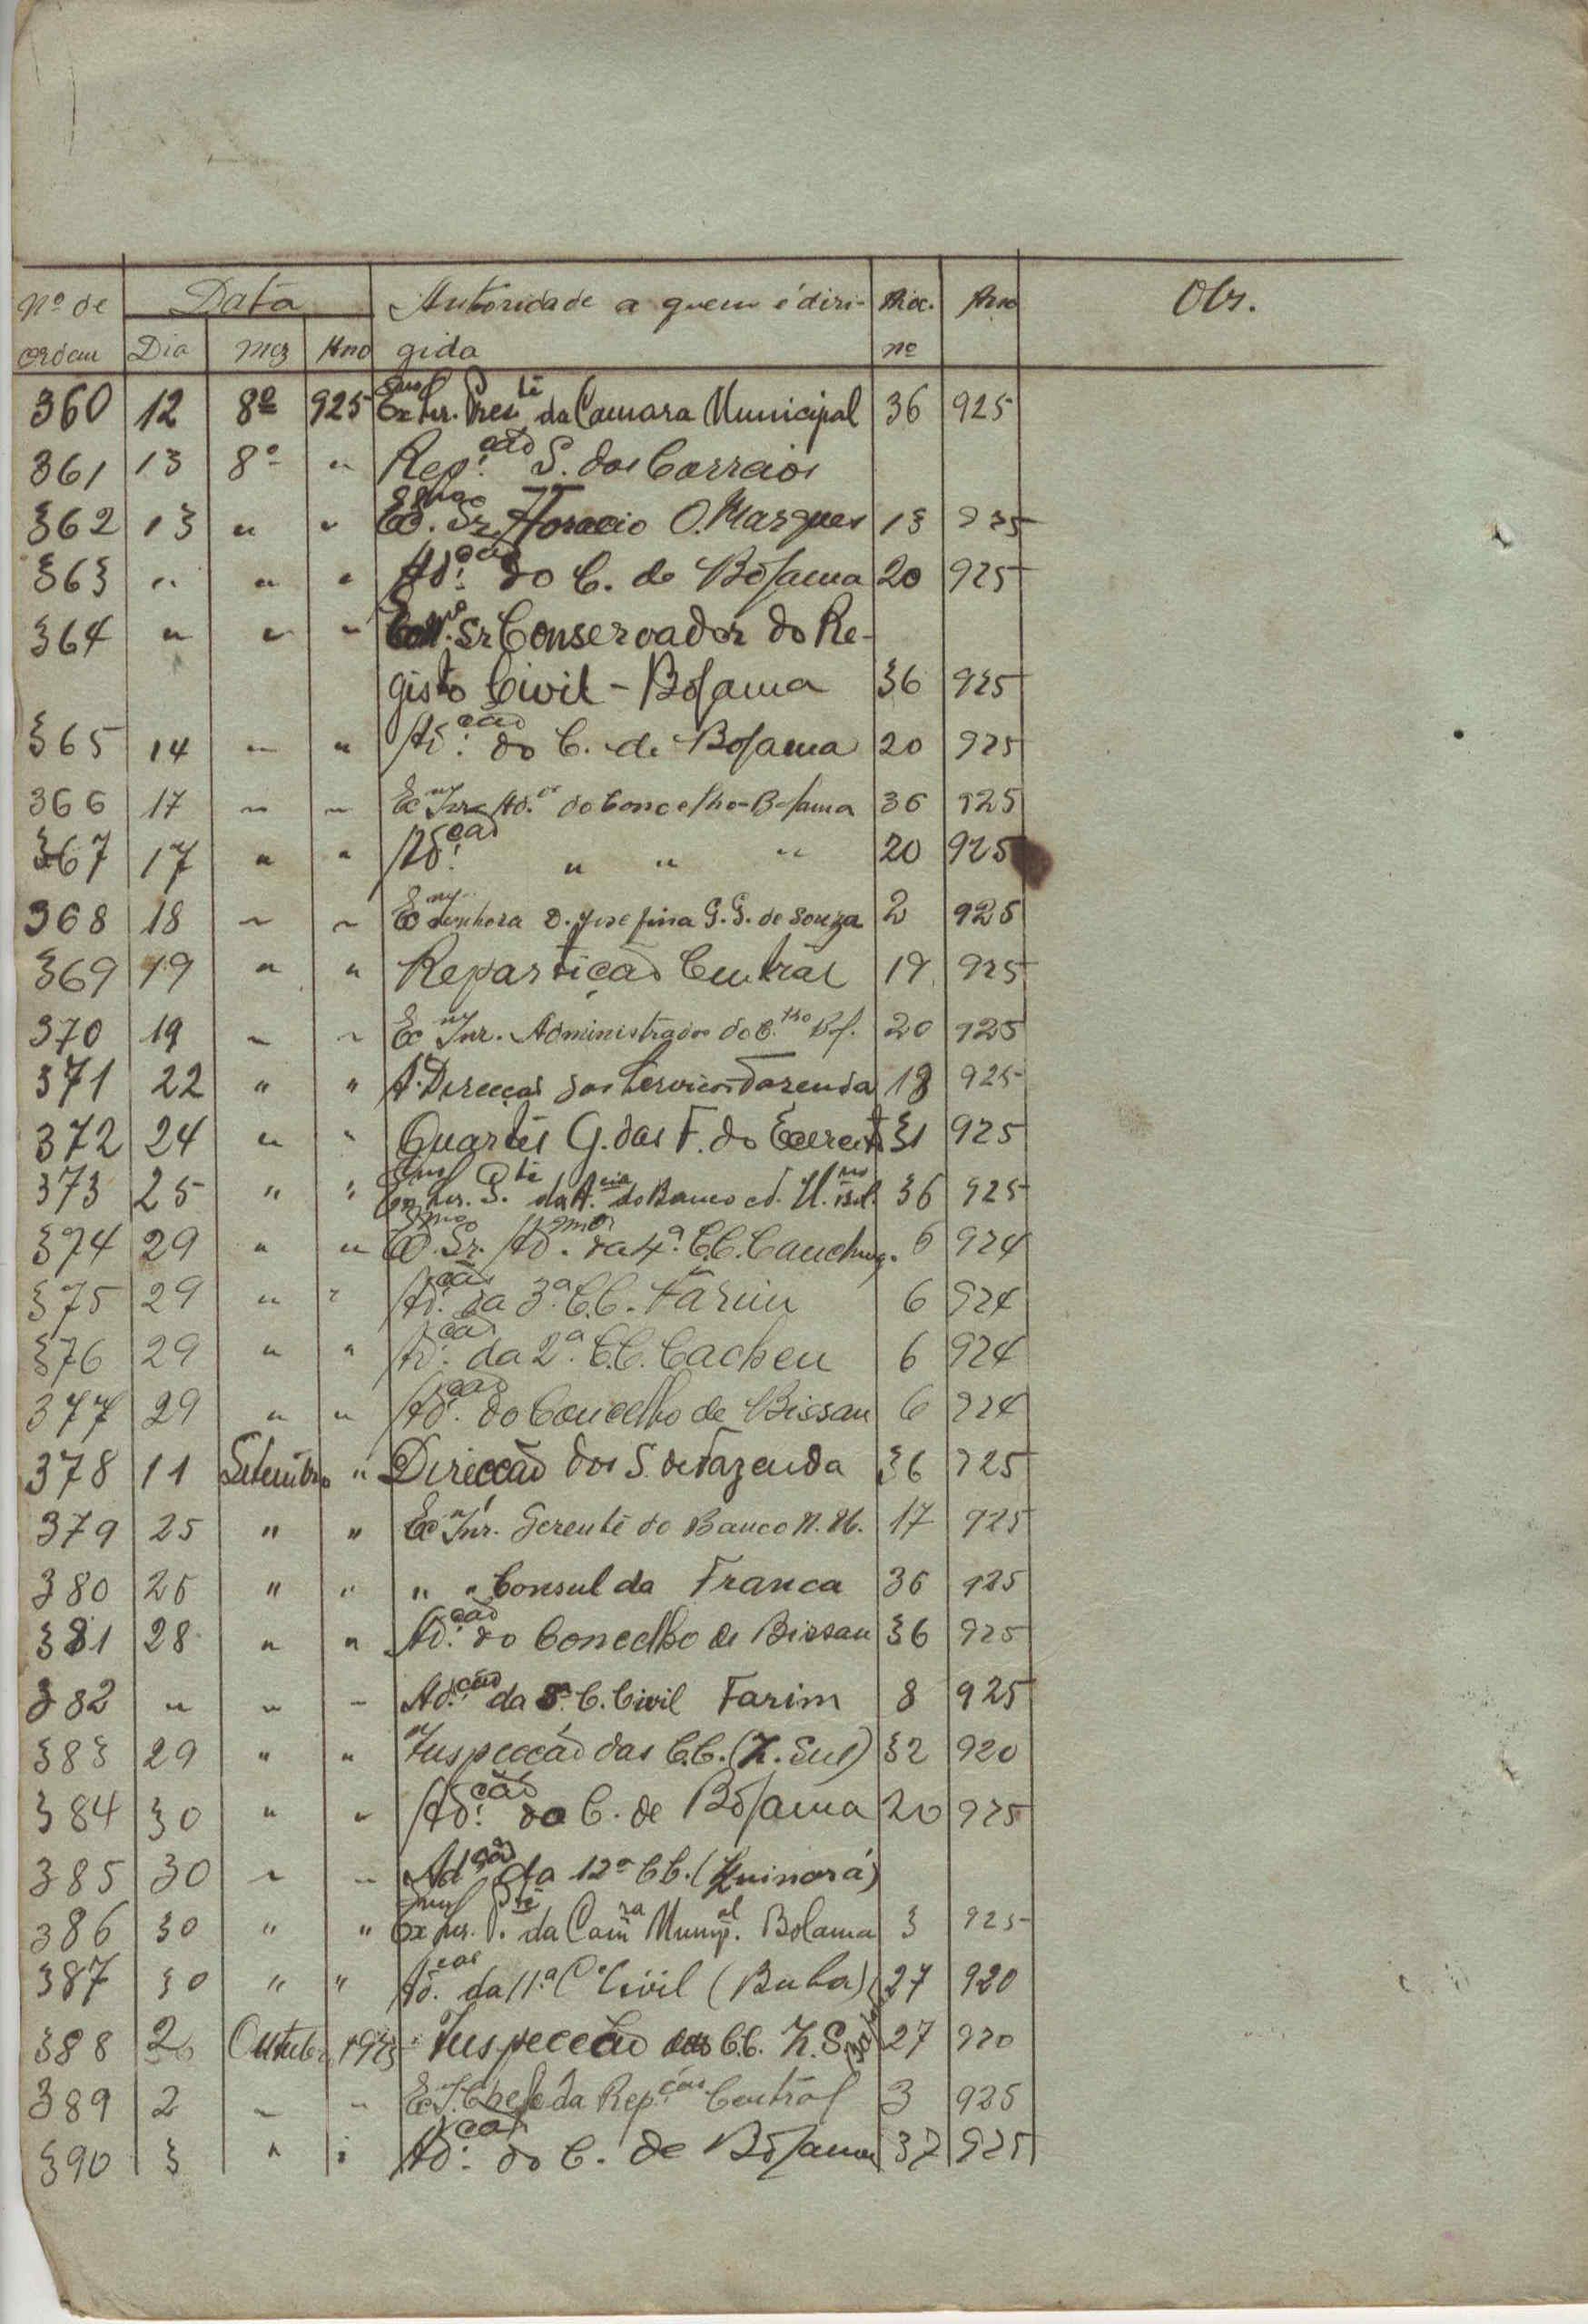 Nº de Data Autoridade a quem é diri- Proc. Ano Obs.
ordem Dia Mez Ano gida nº
360 12 8º 925 Exmo Snr. Preste da Camara Municipal 36 925
361 13 8º " Rep.ção S. dos Correios
362 13 " " Exmo. Sr. Horacio O. Marques 13 925
363 " " " Ad.ção do C. de Bolama 20 925
364 " " " Exmo. Sr Conservador do Re-
gisto Civil - Bolama 36 925
365 14 " " Ad.ção do C. de Bolama 20 925
366 17 " " Ex Snr Ad.or do Concelho-Bolama 36 925
367 17 " " Ad.ção " " " 20 925
368 18 " " Ex Senhora D. Josefina G. G. de Souza 2 925
369 19 " " Repartição Central 19 925
370 19 " " Ex Snr. Administrador do C.lho Bol. 20 925
371 22 " " A Direcção dos Serviços Fazenda 18 925
372 24 " " Quartel G. das F. do Exercito 31 925
373 25 " " Exmo Snr. P.te da A.cia do Banco 36 925
374 29 " " Exmo. Sr. Ad.mor da 4ª. C.C. Canchung. 6 924
375 29 " " Ad.ção da 3ª. C.C. Farim 6 924
376 29 " " Ad.ção da 2ª. C.C. Cacheu 6 924
377 29 " " Ad.ção do Concelho de Bissau 6 924
378 11 Setembro " Direcção dos S. de Fazenda 36 925
379 25 " " Ex Snr. Gerente do Banco N. U. 17 925
380 25 " " " " Consul da Franca 36 925
381 28 " " Ad.ção do Concelho de Bissau 36 925
382 " " " Ad.ção da 3ª C. Civil Farim 8 925
383 29 " " Inspecção das C.C. (Z. Sul) 32 920
384 30 " " Ad.ção do C. de Bolama 20 925
385 30 " " Ad.ção da 12ª C.C. (Quinará)
386 30 " " Exmo Snr. P.te da Camra Munip.al Bolama 3 925
387 30 " " Ad.ção da 11.ª C. Civil (Buba) 27 920
388 2 Outubro 1925 Inspecção das C.C. Z. S. 27 920
389 2 " " Ex S. Chefe da Rep.ção Central 3 925
390 3 " " Ad.ção do C. de Bolama 37 925